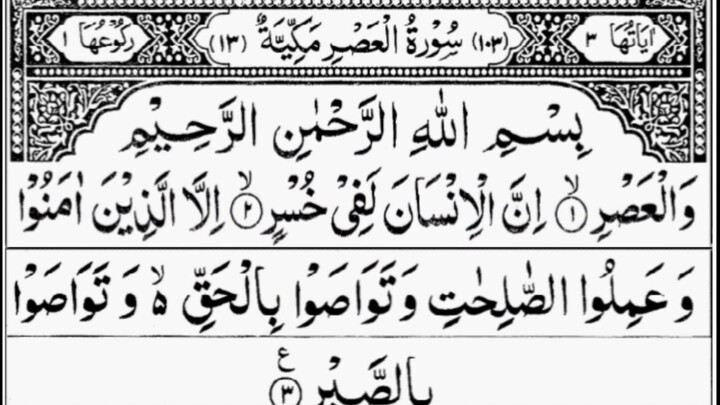 اٰیَاتُهَا ۳ (۱۰۳) سُوْرَةُ الْعَصْرِ مَكِّیَّةٌ (۱۳) رُكُوْعُهَا ۱
بِسْمِ اللهِ الرَّحْمٰنِ الرَّحِیْمِ
وَالْعَصْرِ ۙ﴿۱﴾ اِنَّ الْاِنْسَانَ لَفِیْ خُسْرٍ ۙ﴿۲﴾ اِلَّا الَّذِیْنَ اٰمَنُوْا
وَ عَمِلُوا الصّٰلِحٰتِ وَ تَوَاصَوْا بِالْحَقِّ ۙ۬ وَ تَوَاصَوْا
بِالصَّبْرِ ﴿۳﴾ ع